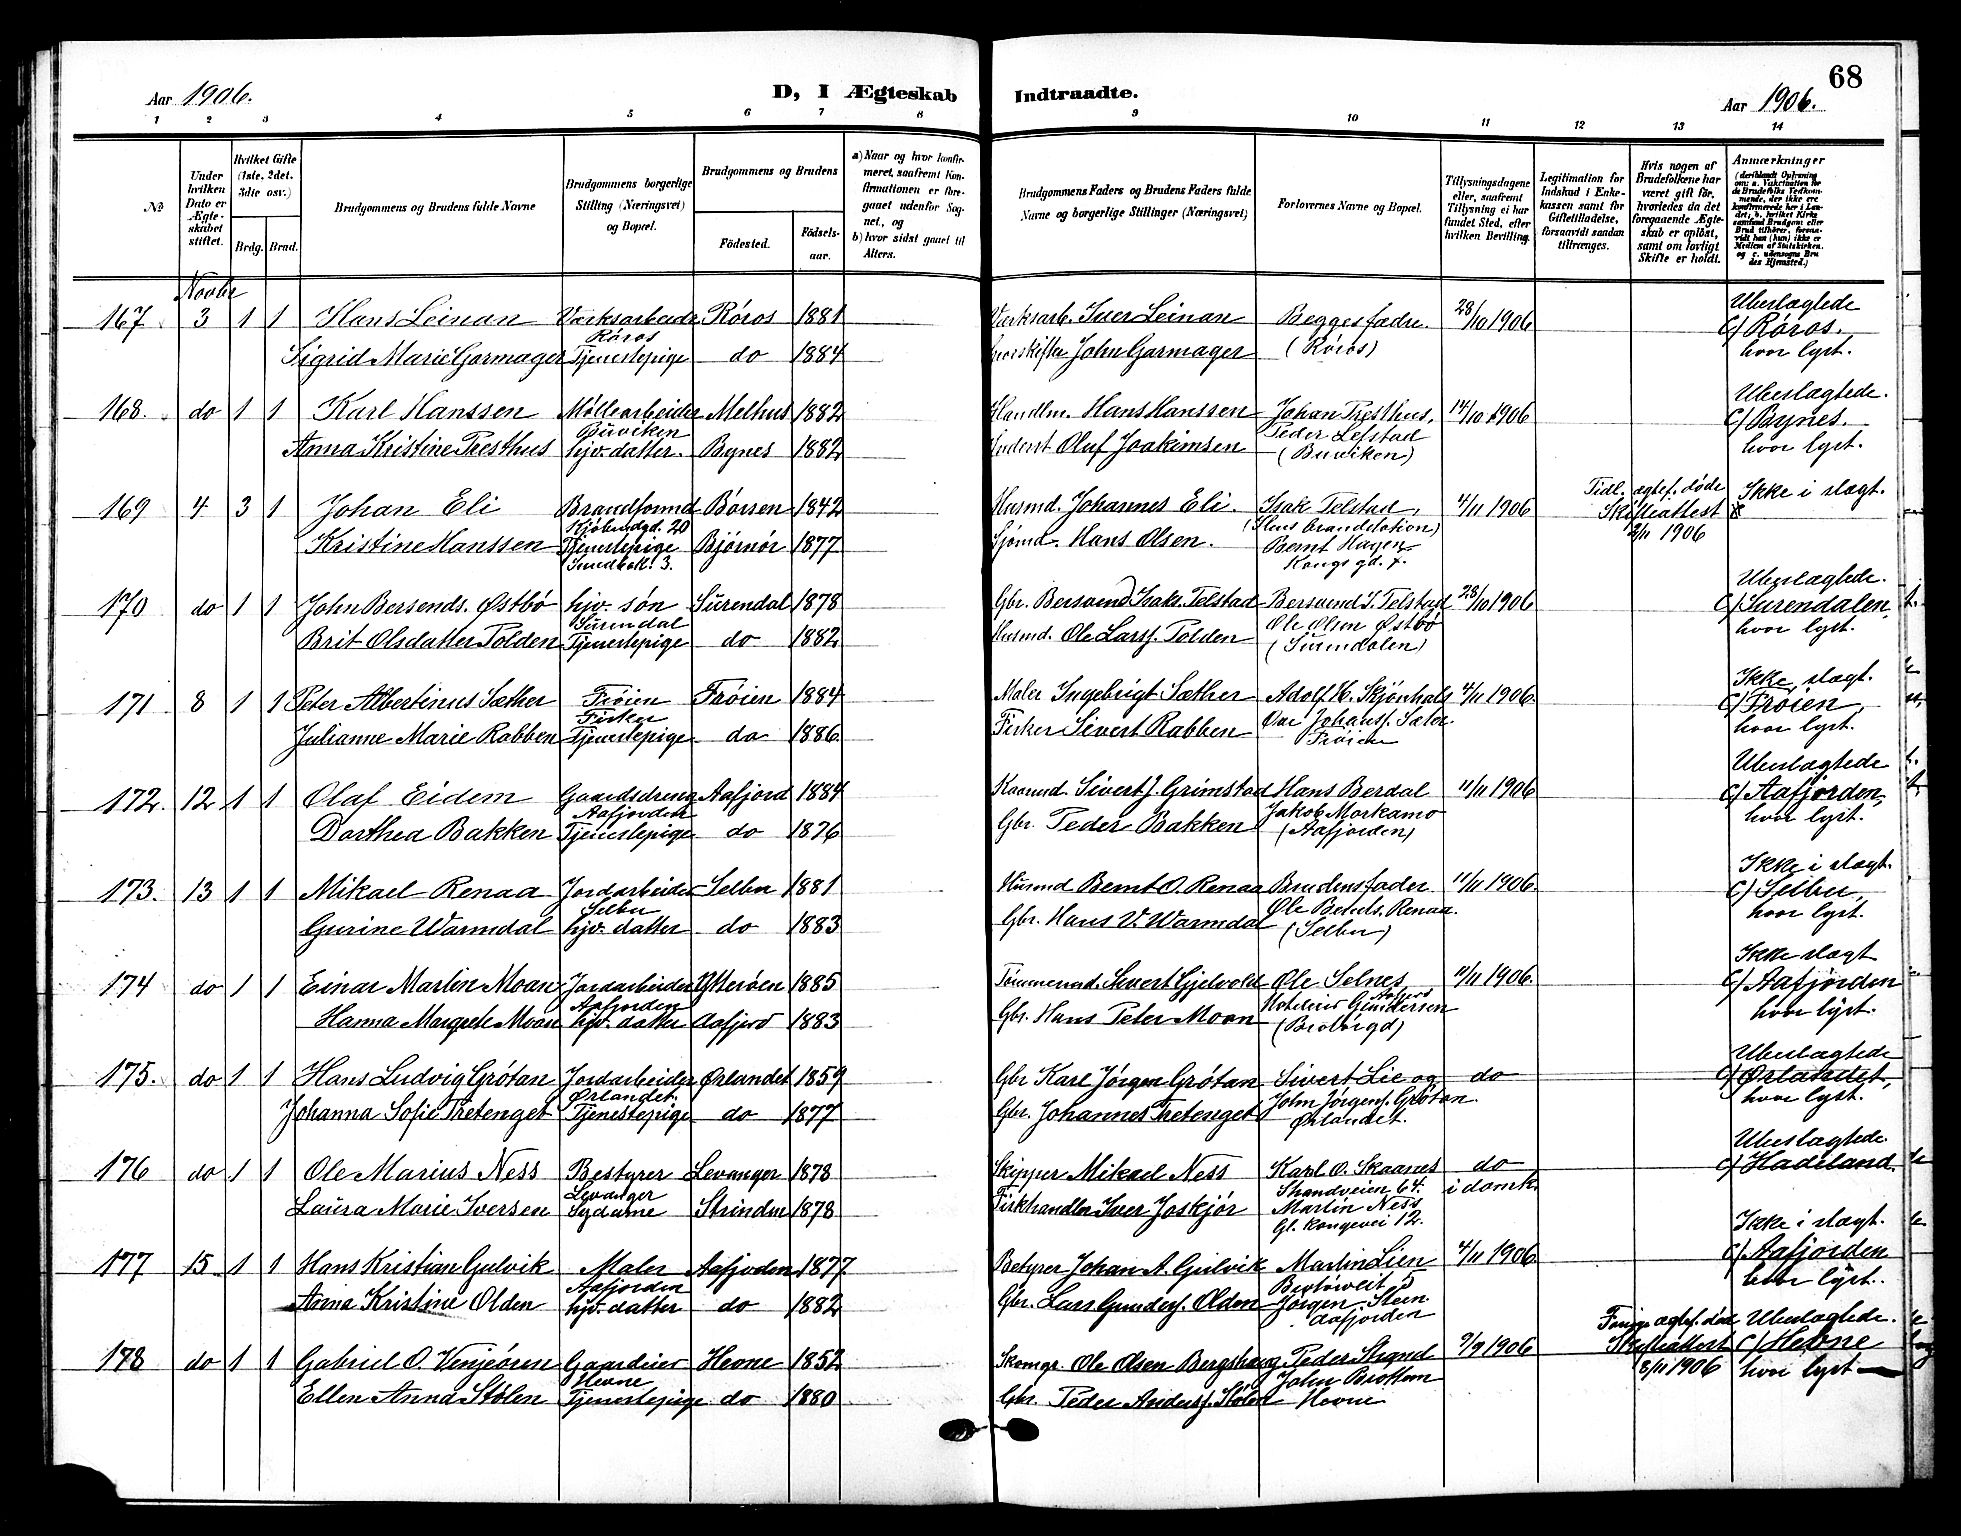 68
Aar 1906.
D, I Ægteskab Indtraadte.
Aar 1906.
1 2 3 4 5 6 7 8 9 10 11 12 13 14
№
Under hvilken Dato er Ægteskabet stiftet.
Hvilket Gifte (1ste, 2det, 3die osv.)
Brdg. Brud.
Brudgommens og Brudens fulde Navne
Brudgommens borgerlige Stilling (Næringsvei) og Bopæl.
Brudgommens og Brudens
Fødested.
Fødselsaar.
a) Naar og hvor konfirmeret, saafremt Konfirmationen er foregaaet udenfor Sognet, og
b) hvor sidst gaaet til Alters.
Brudgommens Faders og Brudens Faders fulde Navne og borgerlige Stillinger (Næringsvei)
Forlovernes Navne og Bopæl.
Tillysningsdagene eller, saafremt Tillysning ei har fundet Sted, efter hvilken Bevilling.
Legitimation for Indskud i Enkekassen samt for Giftetilladelse, forsaavidt saadan tiltrænges.
Hvis nogen af Brudefolkene har været gift før, hvorledes da det foregaaende Ægteskab er opløst, samt om lovligt Skifte er holdt.
Anmærkninger
Novbr
167 3 1 1 Hans Leinan Værksarbeider Røros Røros 1881 Værksarb. Iver Leinan Begges fædre. 28/10 1906 Ubeslægtede
Sigrid Marie Garmager Tjenestepige do 1884 John Garmager (Røros) C/ Røros. hvor lyst.
168. do 1 1 Karl Hanssen Møllearbeider Buviken Melhus 1882 Handlm. Hans Hanssen Johan Presthus, 14/10 1906 Ubeslægtede.
Anna Kristine Presthus hjv. datter. Bynes 1882 Inderst Oluf Joakimsen Peder Lefstad (Buviken) C/ Bynes. hvor lyst.
169 4 3 1 Johan Eli Brandformd Børsen 1842 Husmd. Johannes Eli. Isak Telstad, 4/11 1906 Tidl. ægtef. døde Skifteattest 2/11 1906 Ikke i slægt.
Kristine Hanssen Tjenestepige Bjørnør 1877 Sjømd. Hans Olsen. Bernt Hagen Kongs gd. 7.
170 do 1 1 John Bersends. Østbø hjv. søn Surendal Surendal 1878 Gbr. Bersvend Isaks. Telstad Bersvend I. Telstad 28/10 1906 Ubeslægtede.
Brit Olsdatter Polden Tjenestepige do 1882 Husmd. Ole Larss. Polden Ole Olsen Østbø (Surendalen) C/ Surendalen, hvor lyst.
171 8 1 1 Peter Albertinus Sæther Frøien Fisker Frøien 1884 Maler Ingebrigt Sæther Adolf K. Skjønhals 4/11 1906 Ikke slægt.
Julianne Marie Rabben Tjenestepige do 1886 Fisker Sivert Rabben Johanss. Frøien C/ Frøien, hvor lyst.
172. 12 1 1 Olaf Eidem Gaardsdreng Aafjorden Aafjord 1884 Kaarmd. Sivert J. Grimstad Hans Berdal 11/11 1906 Ubeslægtede
Dorthea Bakken Tjenestepige do 1876 Gbr. Peder Bakken Jakob Morkamo (Aafjorden) C/ Aafjorden, hvor lyst.
173. 13 1 1 Mikael Renaa Jordarbeider Selbu Selbu 1881 Husmd Bernt O. Renaa Brudens fader 11/11 1906 Ikke i slægt.
Gurine Warmdal hjv. datter do 1883 Gbr. Hans V. Warmdal Ole Bernts. Renaa. (Selbu) C/ Selbu, hvor lyst.
174 do 1 1 Einar Martin Moan Jordarbeider Aafjorden Ytterøen 1885 Tømmermd. Sivert Gjelvold Ole Selnes 11/11 1906. Ikke slægt
Hanna Margrete Moan hjv. datter Aafjord 1883 Gbr. Hans Peter Moan Gundersen C/ Aafjorden hvor lyst.
175. do 1 1 Hans Ludvig Grøtan Jordarbeider Ørlandet. Ørlandet 1859 Gbr Karl Jørgen Grøtan Sivert Lie og do Ubeslægtede
Johanna Sofie Tretenget Tjenestepige do 1877 Gbr. Johannes Tretenget John Jørgens. Grøtan. Ørlandet. C/ Ørlandet, hvor lyst.
176 do 1 1 Ole Marius Ness Bestyrer Levanger Levanger 1878 Skipper Mikael Ness Karl O. Skaanes Strandveien 64. do i domk. Ubeslægtede.
Laura Marie Iversen Sydame Strinden 1878 Fiskhandler Iver Joskjør Martin Ness Gl. Kongevei 12. C/ Hadeland.
177 15 1 1 Hans Kristian Gulvik Maler Aafjorden Aafjorden 1877 Betyrer Johan A. Gulvik Martin Lien 4/11 1906 Ikke i slægt.
Anna Kristine Olden hjv. datter do 1882 Gbr. Lars Gunders. Olden Jørgen Stein Aafjorden C/ Aafjorden hvor lyst.
178 do 1 1 Gabriel O. Venjeøren Gaardeier Hevne Hevne 1852 Skomgr. Ole Olsen Bergshaug Peder Strand 9/9 1906 ægtef. død Skifteattest 8/11 1906 Ubeslægtede.
Ellen Anna Stølen Tjenestepige do 1880 Gbr. Peder Anderss. Stølen John Brottom Hevne C/ Hevne hvor lyst